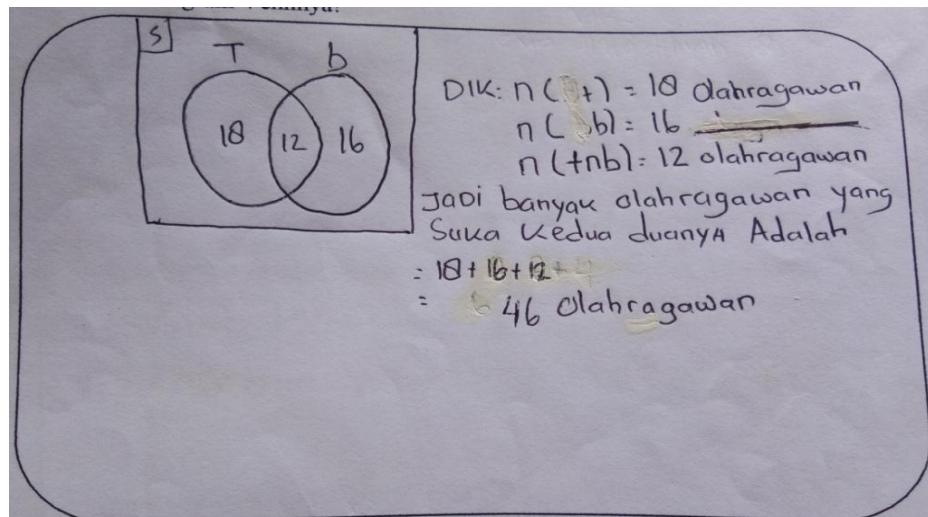 S
T b
18 12 16
DIK: n(t) = 18 olahragawan
n(b) = 16
n(tnb) = 12 olahragawan
JaDi banyak olahragawan yang
Suka Kedua duanyA Adalah
= 18 + 16 + 12
= 46 Olahragawan